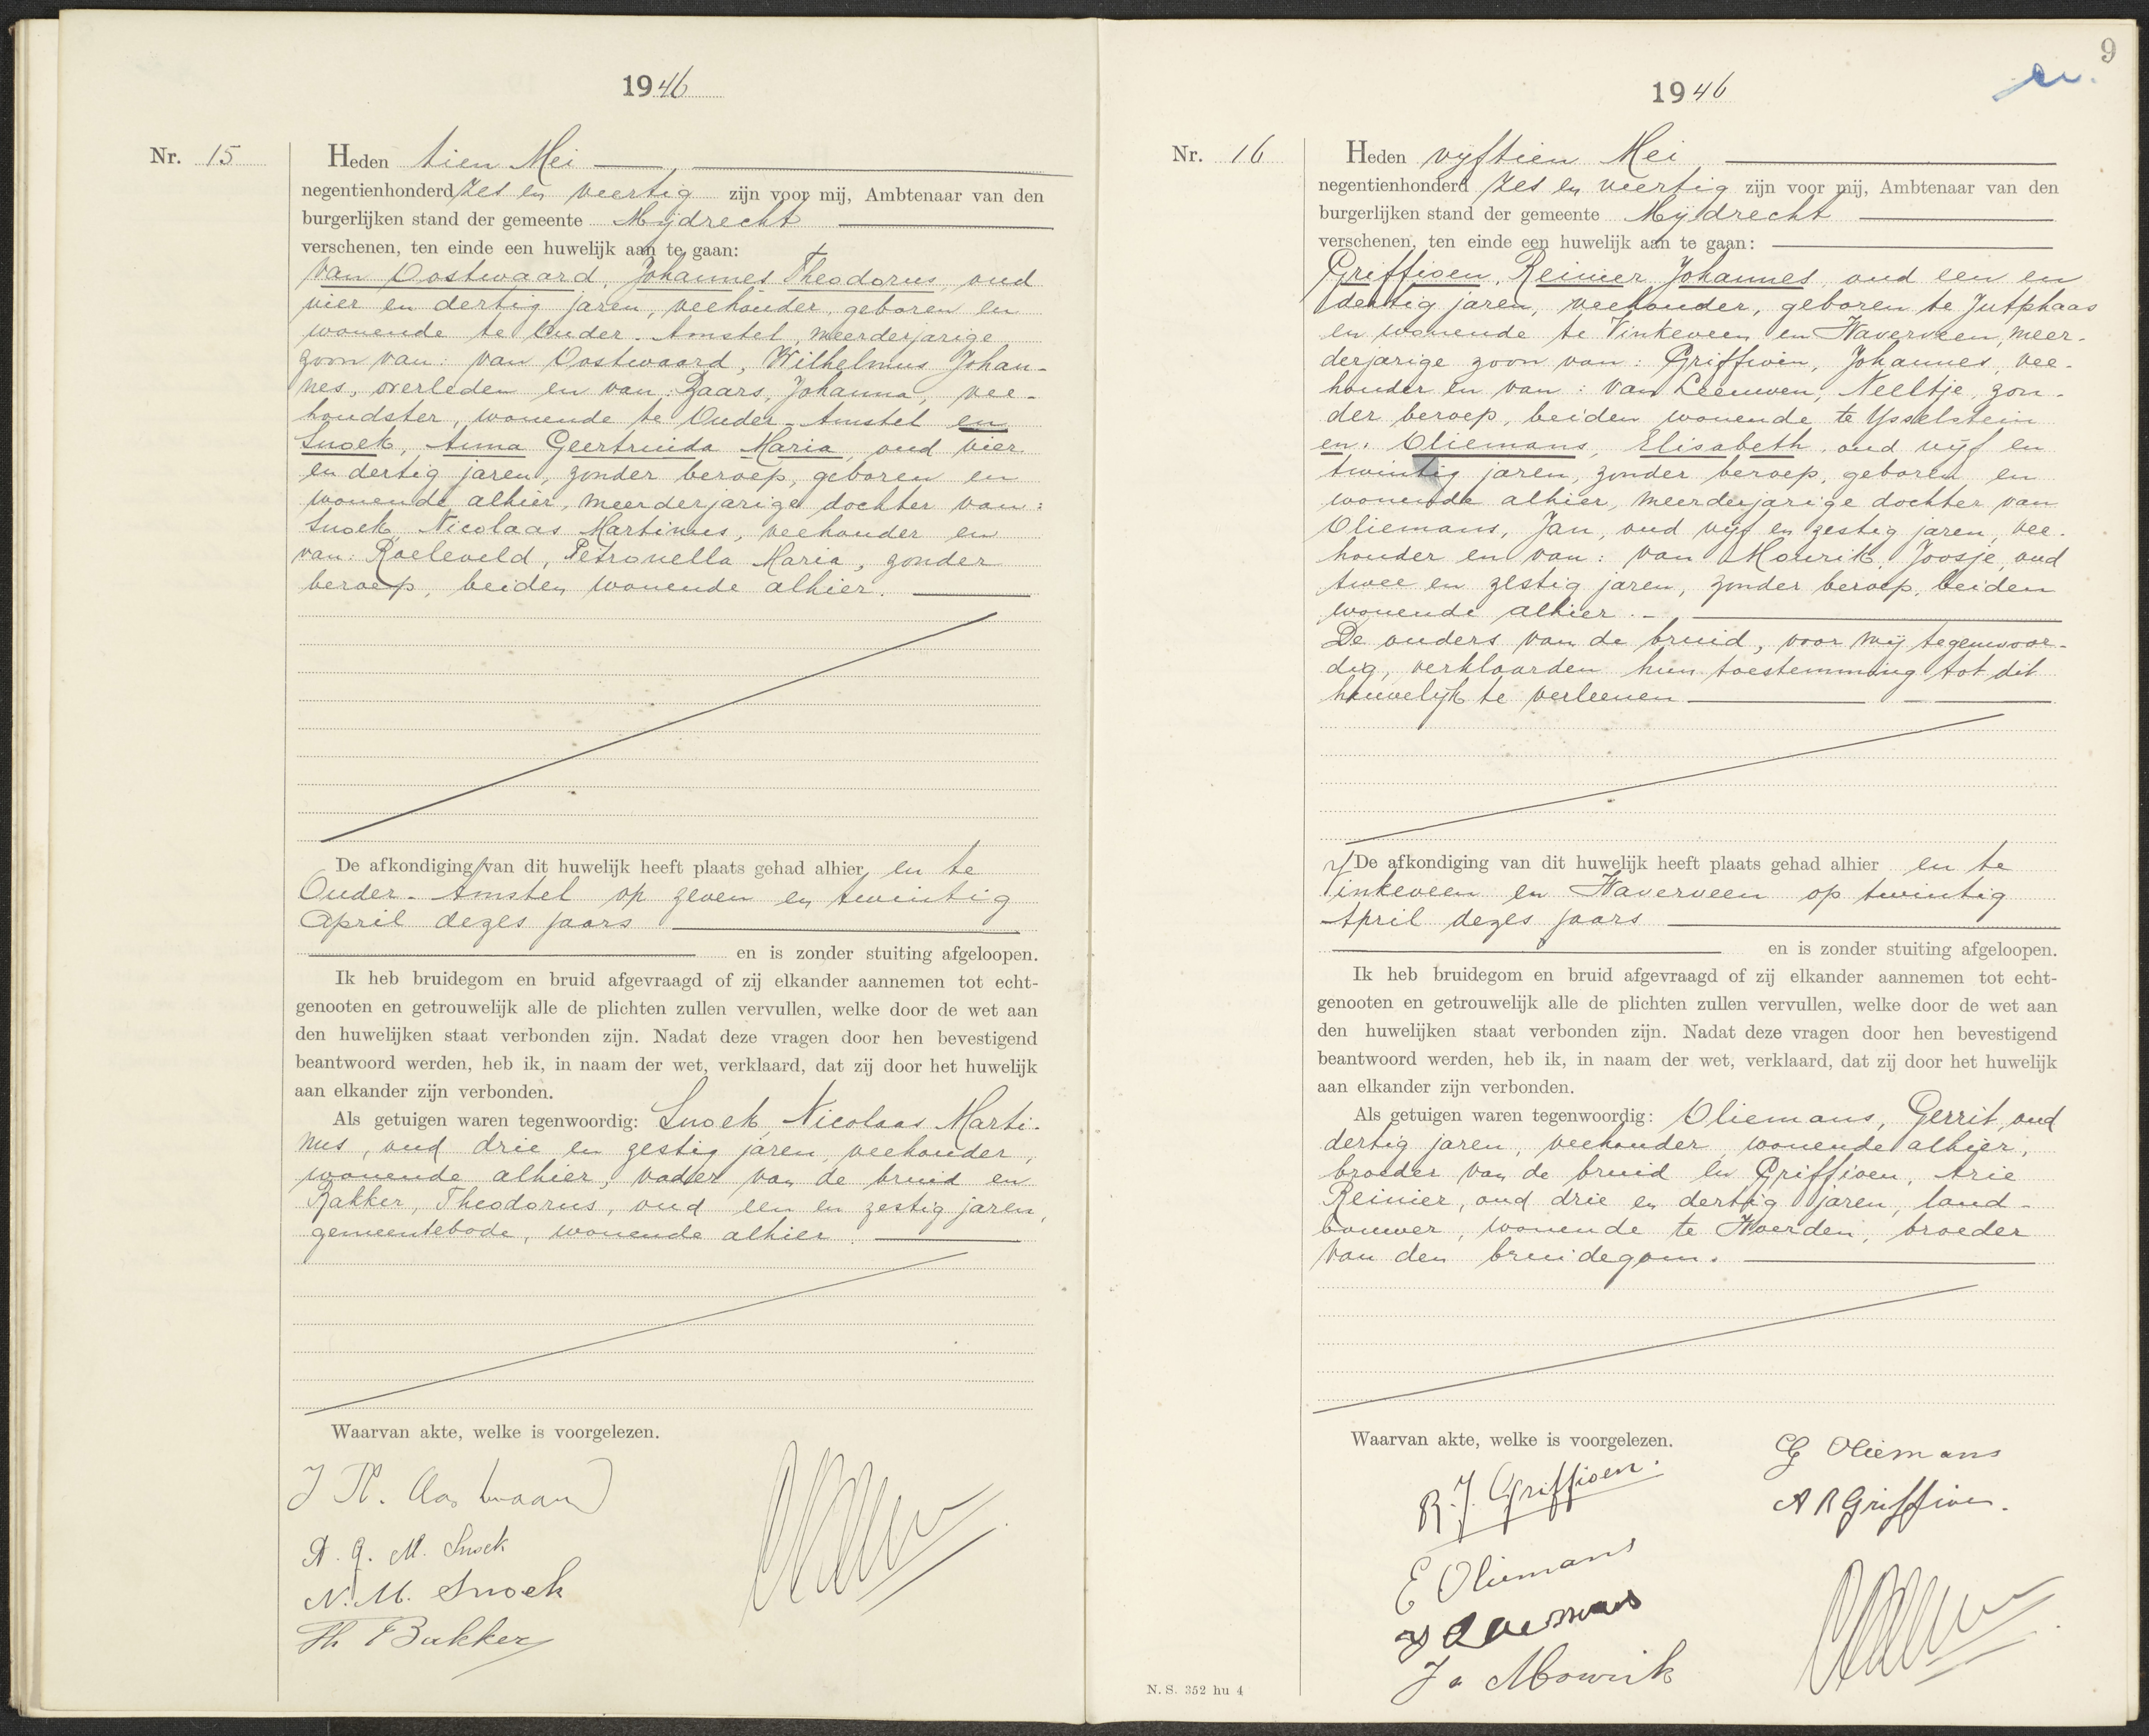 1946
Nr. 15
Heden tien Mei
negentienhonderd zes en veertig zijn voor mij, Ambtenaar van den
burgerlijken stand der gemeente Mijdrecht
verschenen, ten einde een huwelijk aan te gaan:
van Oostwaard, Johannes Theodorus, oud
vier en dertig jaren, veehouder, geboren en
wonende te Ouder-Amstel, meerderjarige
zoon van: van Oostwaard, Wilhelmus Johan-
nes, overleden en van: Zaars, Johanna, vee-
houdster, wonende te Ouder-Amstel en
Snoek, Anna Geertruida Maria, oud vier
en dertig jaren, zonder beroep, geboren en
wonende alhier, meerderjarige dochter van:
Snoek, Nicolaas Martinus, veehouder en
van: Roeleveld, Petronella Maria, zonder
beroep, beiden wonende alhier.
De afkondiging van dit huwelijk heeft plaats gehad alhier en te
Ouder-Amstel op zeven en twintig
April dezes jaars
en is zonder stuiting afgeloopen.
Ik heb bruidegom en bruid afgevraagd of zij elkander aannemen tot echt-
genooten en getrouwelijk alle de plichten zullen vervullen, welke door de wet aan
den huwelijken staat verbonden zijn. Nadat deze vragen door hen bevestigend
beantwoord werden, heb ik, in naam der wet, verklaard, dat zij door het huwelijk
aan elkander zijn verbonden.
Als getuigen waren tegenwoordig: Snoek, Nicolaas Marti-
nus, oud drie en zestig jaren, veehouder,
wonende alhier, vader van de bruid en
Bakker, Theodorus, oud een en zestig jaren,
gemeentebode, wonende alhier.
Waarvan akte, welke is voorgelezen.
J Th. Oostwaard
A. G. M. Snoek
N. M. Snoek
Th Bakker
9
1946
Nr. 16
Heden vijftien Mei
negentienhonderd zes en veertig zijn voor mij, Ambtenaar van den
burgerlijken stand der gemeente Mijdrecht
verschenen, ten einde een huwelijk aan te gaan:
Griffioen, Reinier Johannes, oud een en
dertig jaren, veehouder, geboren te Jutphaas
en wonende te Vinkeveen en Waverveen, meer-
derjarige zoon van: Griffioen, Johannes, vee-
houder en van: van Leeuwen, Neeltje, zon-
der beroep, beiden wonende te Ysselstein
en: Oliemans, Elisabeth, oud vijf en
twintig jaren, zonder beroep, geboren en
wonende alhier, meerderjarige dochter van
Oliemans, Jan, oud vijf en zestig jaren, vee-
houder en van: van Mourik, Joosje, oud
twee en zestig jaren, zonder beroep, beiden
wonende alhier.
De ouders van de bruid, voor mij tegenwoor-
dig, verklaarden hun toestemming tot dit
huwelijk te verleenen
De afkondiging van dit huwelijk heeft plaats gehad alhier en te
Vinkeveen en Waverveen op twintig
April dezes jaars
en is zonder stuiting afgeloopen.
Ik heb bruidegom en bruid afgevraagd of zij elkander aannemen tot echt-
genooten en getrouwelijk alle de plichten zullen vervullen, welke door de wet aan
den huwelijken staat verbonden zijn. Nadat deze vragen door hen bevestigend
beantwoord werden, heb ik, in naam der wet, verklaard, dat zij door het huwelijk
aan elkander zijn verbonden.
Als getuigen waren tegenwoordig: Oliemans, Gerrit, oud
dertig jaren, veehouder, wonende alhier,
broeder van de bruid en Griffioen, Arie
Reinier, oud drie en dertig jaren, land-
bouwer, wonende te Woerden, broeder
van den bruidegom.
Waarvan akte, welke is voorgelezen.
G Oliemans
R. J. Griffioen.
A R Griffioen.
E Oliemans
J Oliemans
J v Mourik
N. S. 352 hu 4